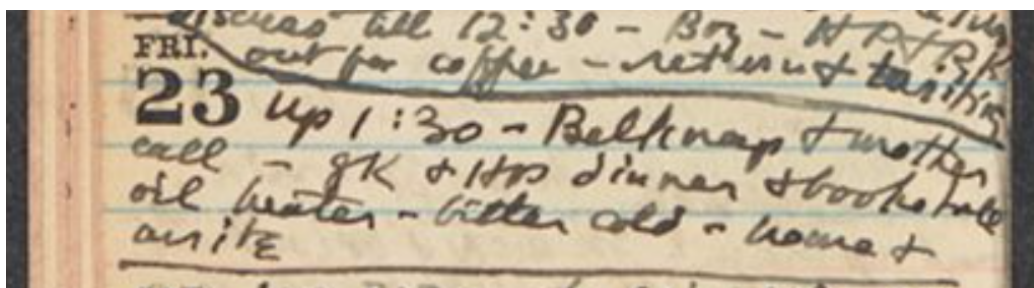 discuss till 12:30 – Boy – HP & RK
FRI. out for coffee – return &
23 up 1:30 – Belknap & mother
call – GK & HP dinner & bookstall
oil heater – bitter cold – home &
write